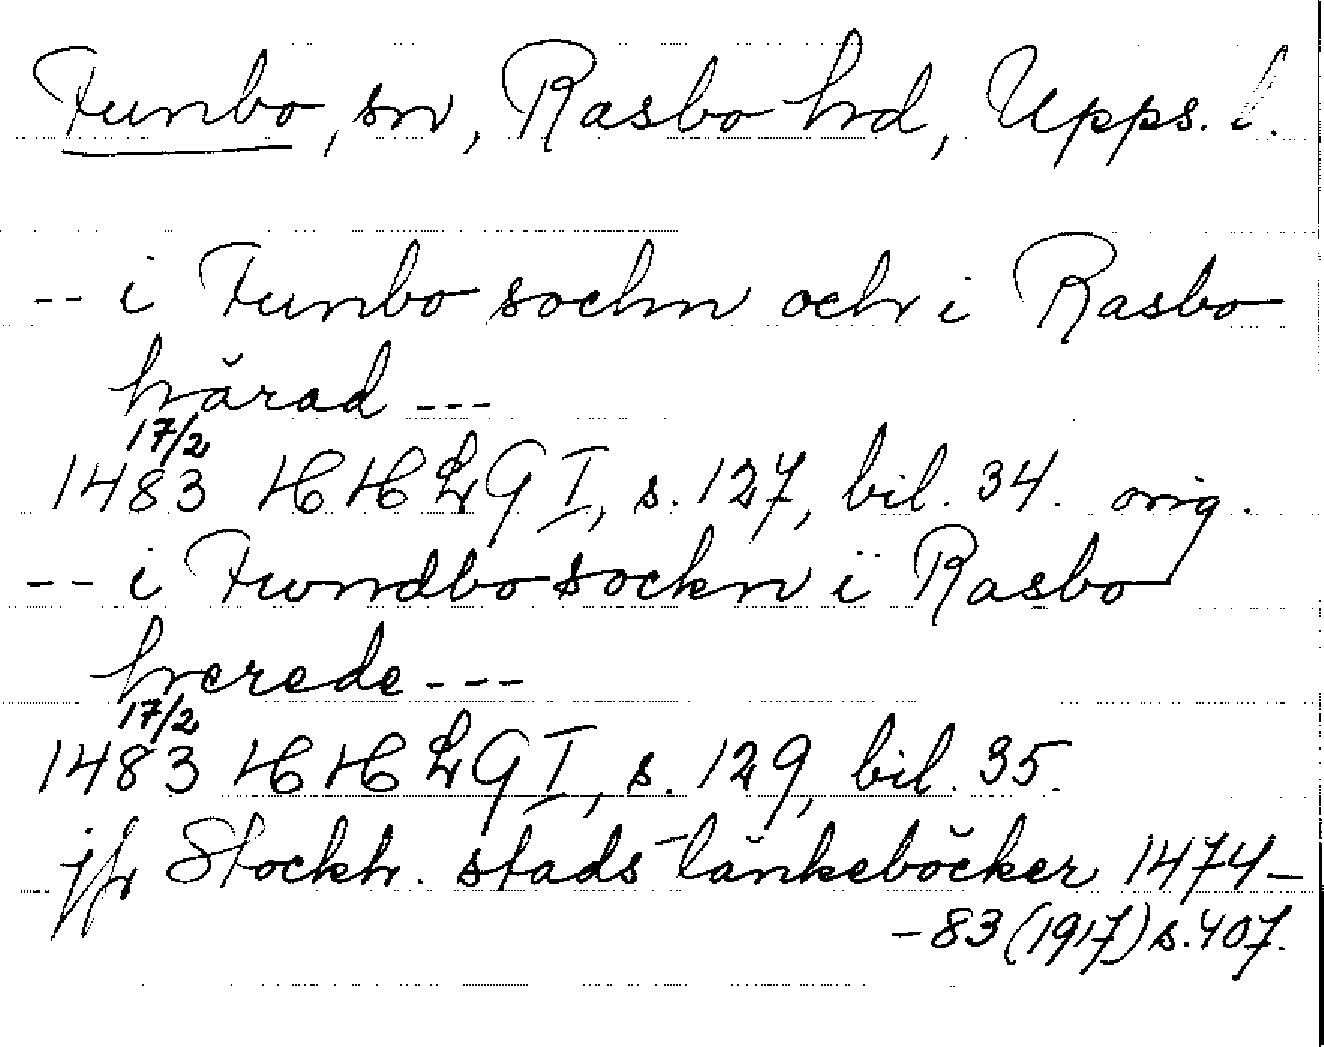 Funbo, sn, Rasbo hd, Upps. l.
-- i Funbo sochn och i Rasbo
härad ---
17/2
1483 HHLG I, s. 127, bil. 34. orig.
-- i Fwndbo sockn i Rasbo
herede ---
17/2
1483 HHLG I, s. 129, bil. 35.
jfr Stockh. stads tänkeböcker 1474-
-83 (1917) s. 407.